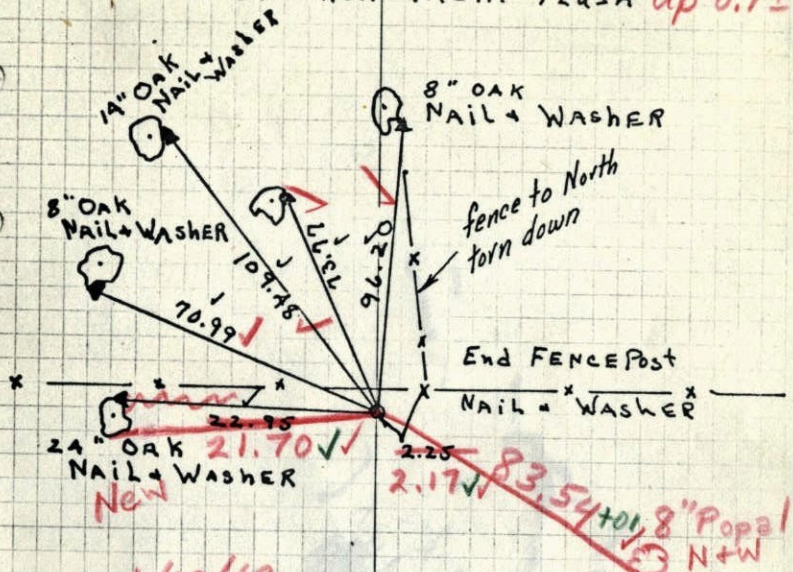 FLUSH up 0.7±
14" OAK
NAIL & WASHER
8" OAK
NAIL & WASHER
8" OAK
NAIL & WASHER
fence to North
torn down
73.97
96.20
109.48
70.99
End FENCE Post
NAIL & WASHER
22.95
21.70
24" OAK
NAIL & WASHER
New
2.25
2.17
83.54
+01
8" Popal
N+W